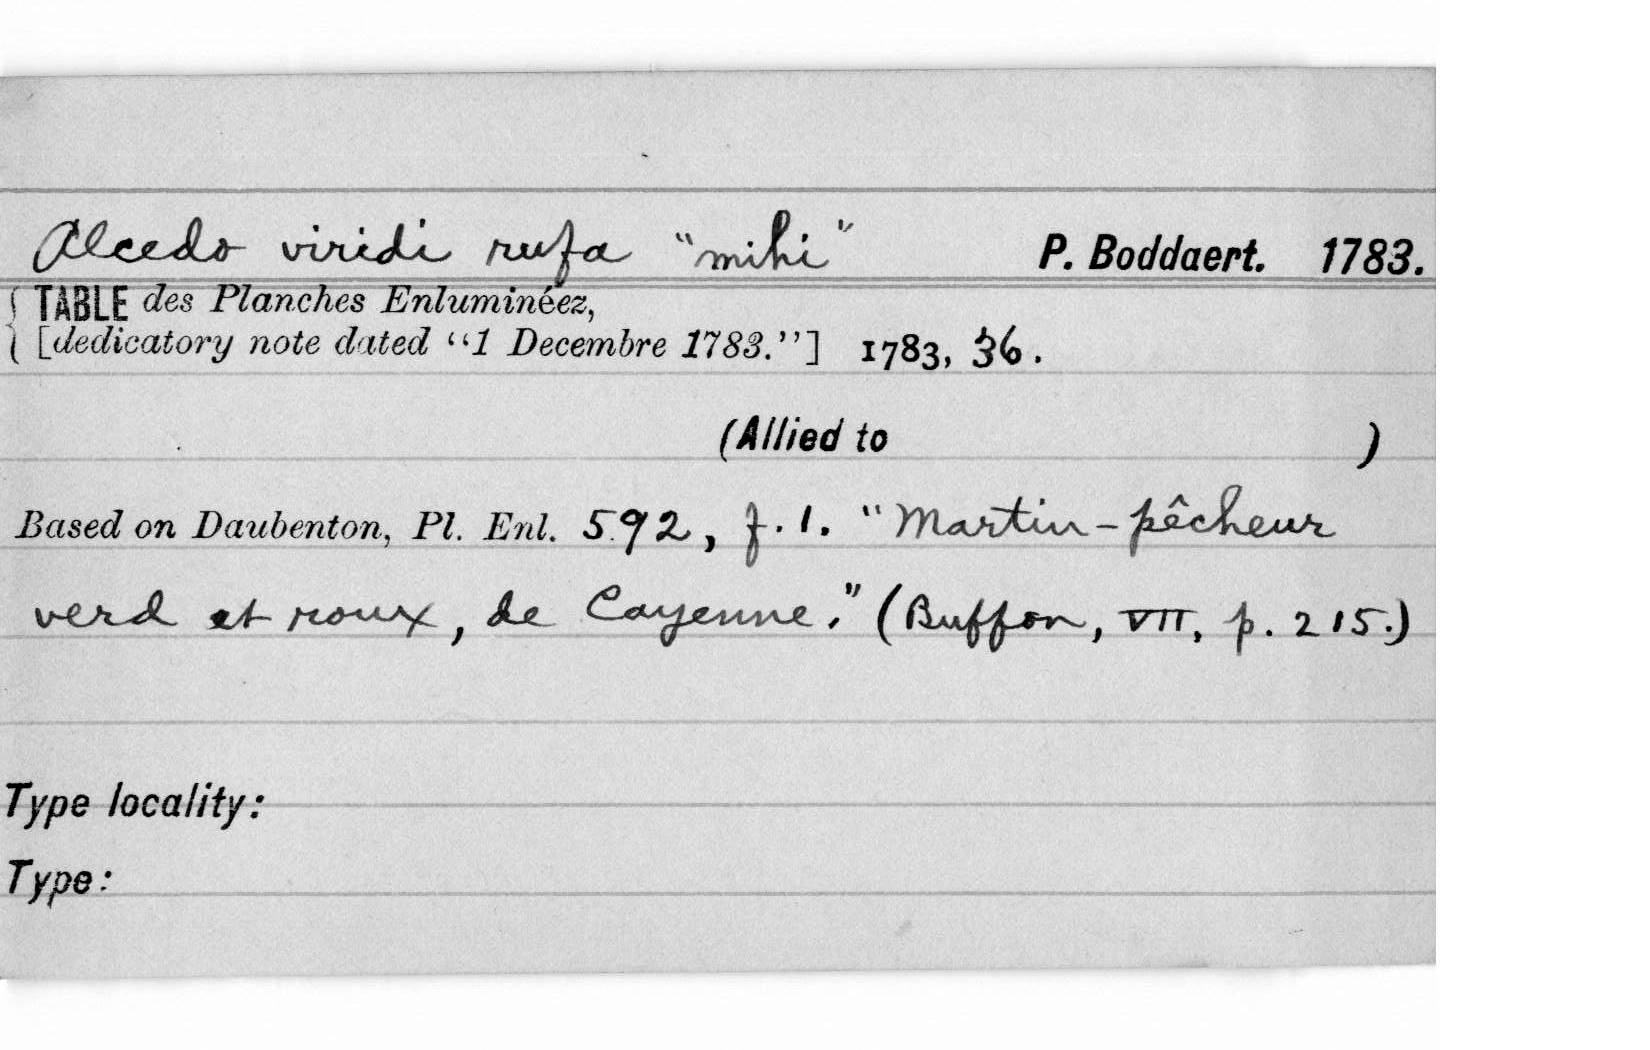 Alcedo viridi rufa "mihi" P. Boddaert. 1783.
TABLE des Planches Enluminéez,
[dedicatory note dated "1 Decembre 1783."] 1783, 36.
(Allied to )
Based on Daubenton, Pl. Enl. 592, f. 1. "Martin-pêcheur
verd et roux, de Cayenne." (Buffon, VII, p. 215.)
Type locality:
Type: